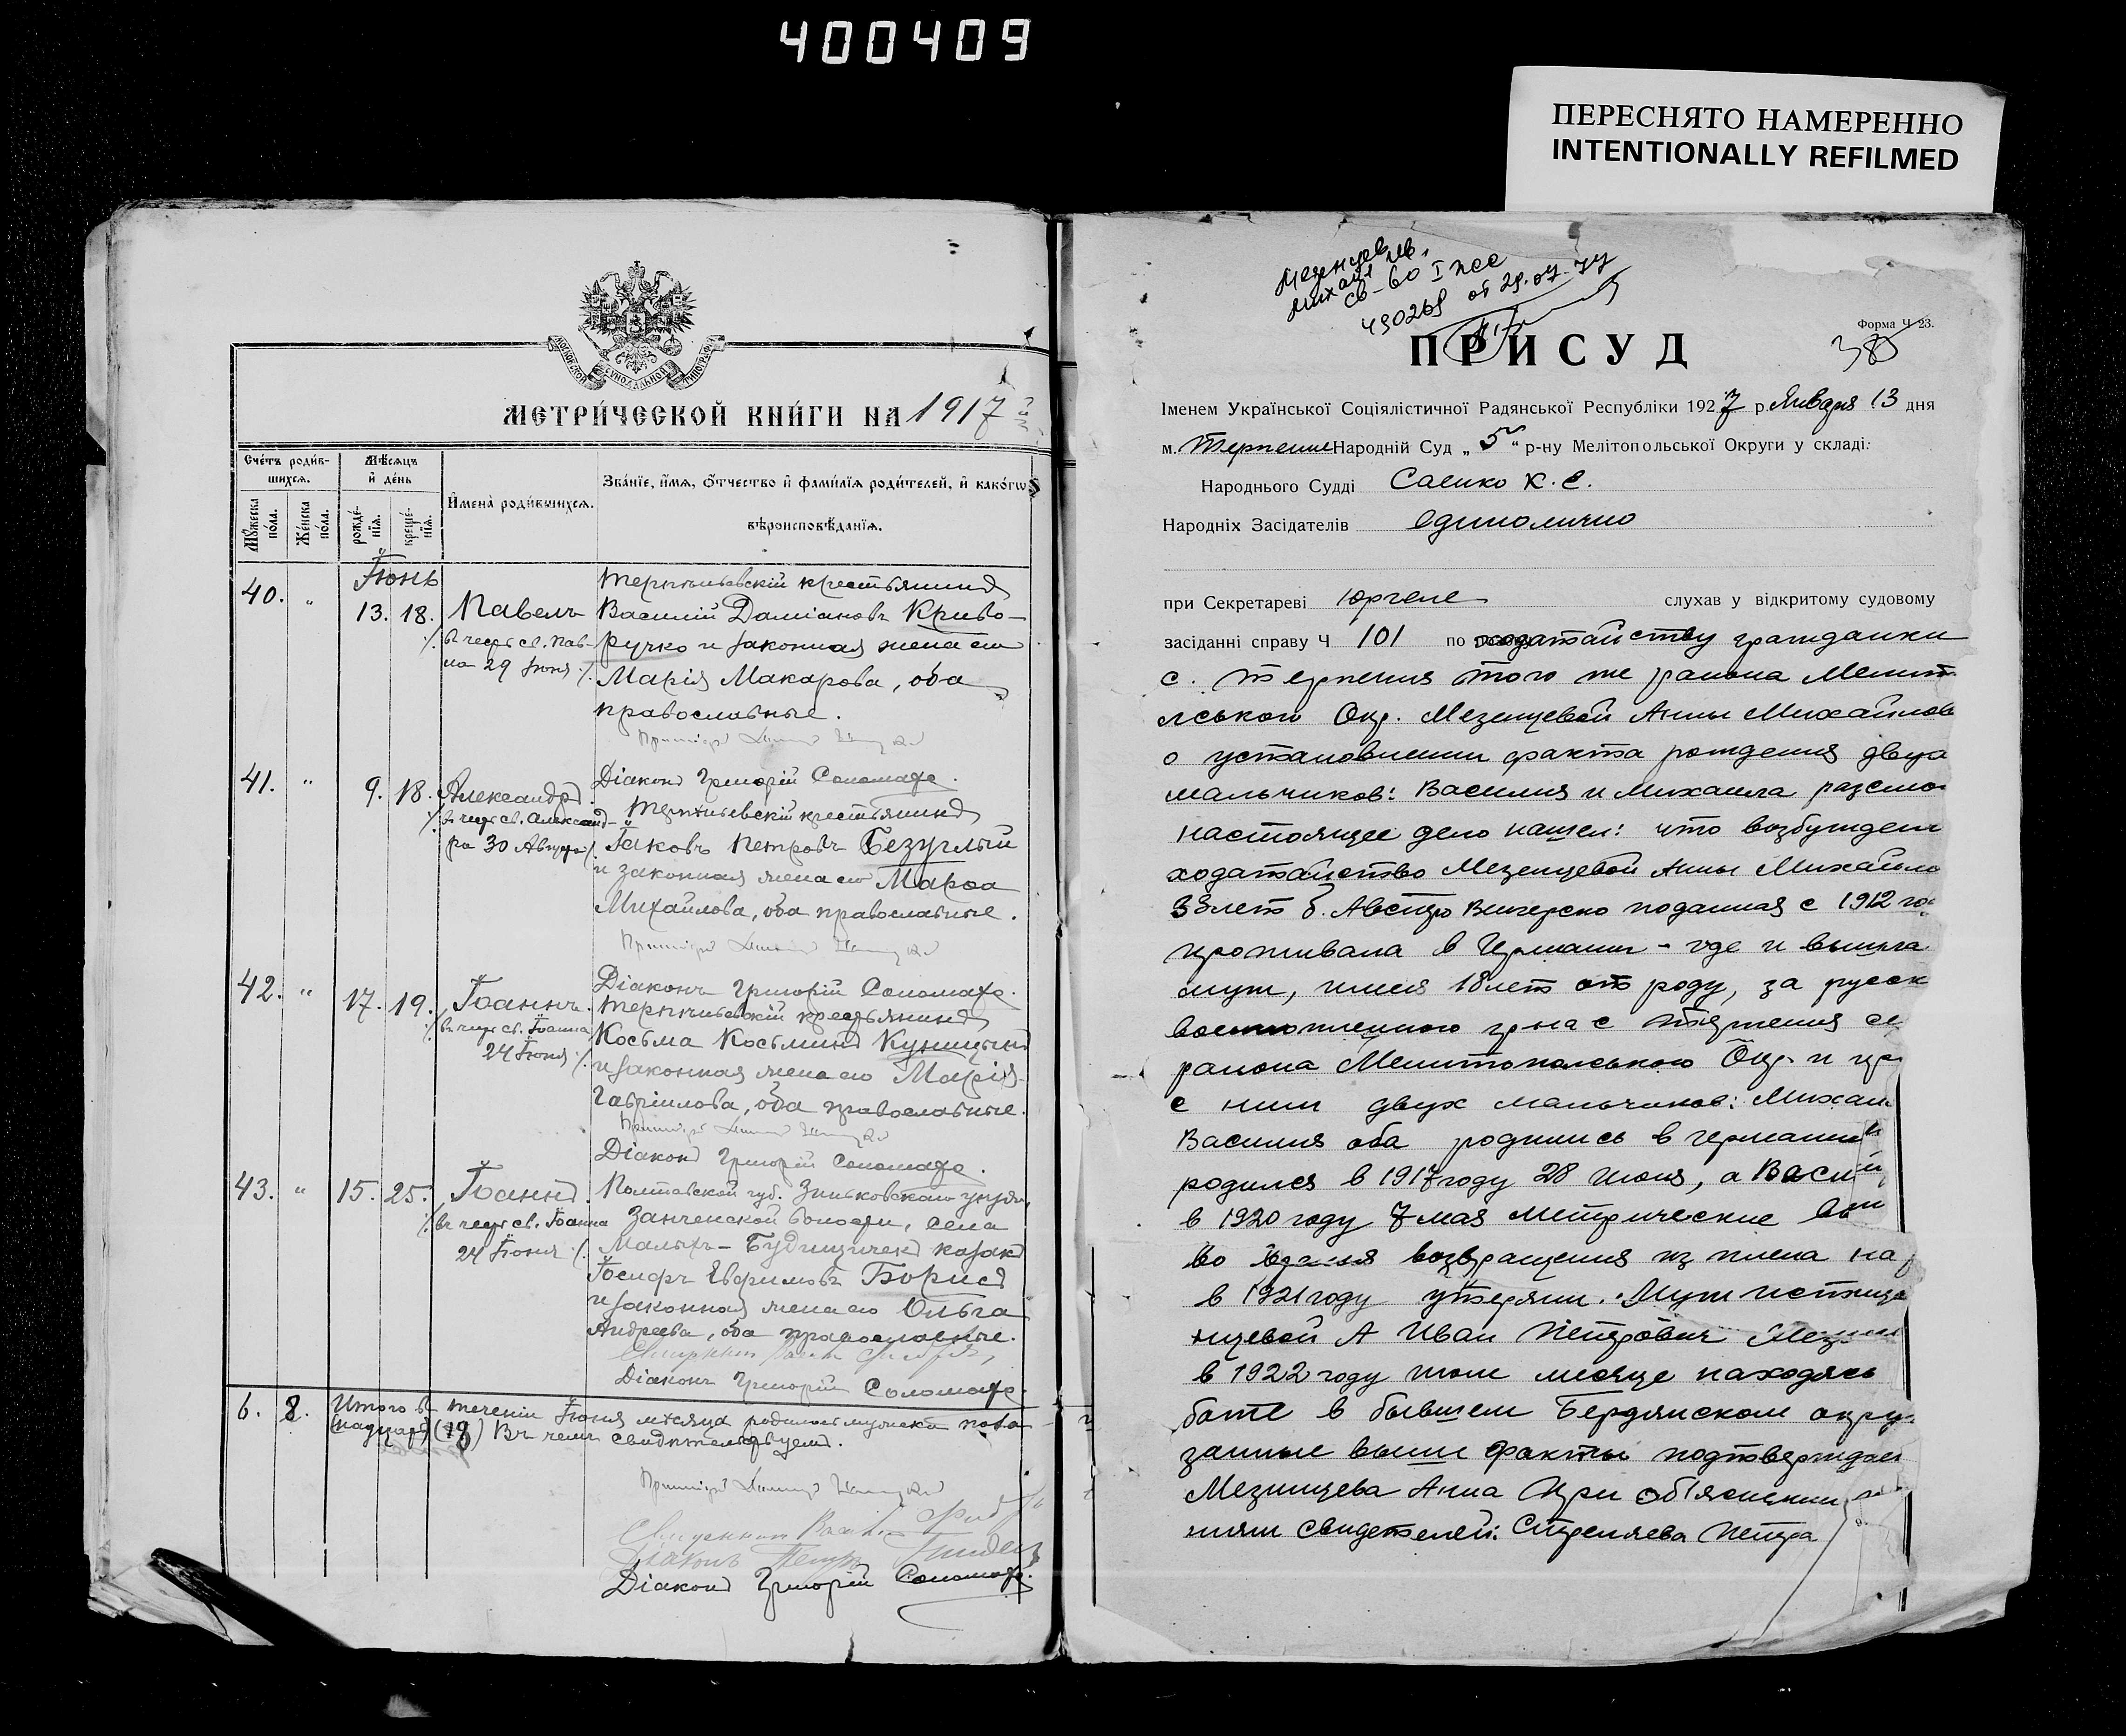 400409
ПЕРЕСНЯТО НАМЕРЕННО
INTENTIONALLY REFILMED
МОСКОВСКОЙ СѴНОДАЛЬНОЙ ТИПОГРАФІИ
МЕТРИ́ЧЕСКОЙ КНИ́ГИ НА 1917
Сче́тъ роди́в-
шихсѧ.
Мѣ́сѧцъ
и҆ де́нь
И҆мена̀ роди́вшихсѧ.
Зва́нїе, и҆́мѧ, ѻ҆́тчество и҆ фами́лїѧ роди́телей, и҆ како́гѡ
вѣроисповѣ́данїѧ.
Мꙋ́жеска по́ла.
Же́нска по́ла.
рожде́-нїѧ.
креще́-нїѧ.
Іюнь
40. " 13. 18. Павелъ
въ честь св. Пав-
ла 29 Іюня
Терпѣньевскій крестьянинъ
Василій Даміановъ Криво-
ручко и законная жена его
Марія Макарова, оба
православные.
Діаконъ Григорій Соломаха.
41. " 9. 18. Александръ.
въ честь св. Александ-
ра 30 Августа
Терпѣньевскій крестьянинъ
Іаковъ Петровъ Безуглый
и законная жена его Марѳа
Михайлова, оба православные.
Діаконъ Григорій Соломаха.
42. " 17. 19. Іоаннъ.
въ честь св. Іоанна
24 Іюня
Терпѣньевскій крестьянинъ
Косьма Косьминъ Куницынъ
и законная жена его Марія
Гавріилова, оба православные.
Діаконъ Григорій Соломаха.
43. " 15. 25. Іоаннъ.
въ честь св. Іоанна
24 Іюня
Полтавской губ. Зиньковскаго уѣзда,
волости, села
Малыхъ-Будищичекъ казакъ
Іосифъ Евфимовъ Борисъ
и законная жена его Ольга
Андреева, оба православные.
Діаконъ Григорій Соломаха.
6. 8. Итого въ теченіи Іюня мѣсяца родилось мужеска пола
Въ чемъ свидѣтельствуемъ.
Діаконъ Григорій Соломаха.
Мезенцев
Михаил Ив.
св-во I
490269 от 29.07.77
Форма Ч 23.
38
ПРИСУД
Іменем Української Соціялістичної Радянської Республіки 1927 р. Января 13 дня
м. Терпение Народній Суд „5“ р-ну Мелітопольської Округи у складі:
Народнього Судді Саенко К. Е.
Народніх Засідателів единолично
при Секретареві Юргеле слухав у відкритому судовому
засіданні справу Ч 101 по ходатайству гражданки
с. Терпения того же района Мелит
льского Окр. Мезенцевой Анны Михайлов
о установлении факта рождения двух
мальчиков: Василия и Михаила разсмо
настоящее дело нашел: что возбужден
ходатайство Мезенцевой Анны Михайло
33 лет б. Австро Венгерско поданная с 1912 го
проживала в Германии - где и вышла
муж, имея 18 лет от роду, за русск
военнопленного гр-на с Терпения
района Мелитопольского Окр. и
с ним двух мальчиков: Михаи
Василия оба родились в Германии
родился в 1917 году 28 июня, а Васи
в 1920 году 7 мая метрические
во возвращения из плена на
в 1921 году утеряли. Муж
нцевой А Иван Петрович
в 1922 году июле месяце находясь
боте в бывшем Бердянском окру
занные выше факты подтверждае
Мезинцева Анна при об'яснении
ниям свидетелей: Стреляева Петра